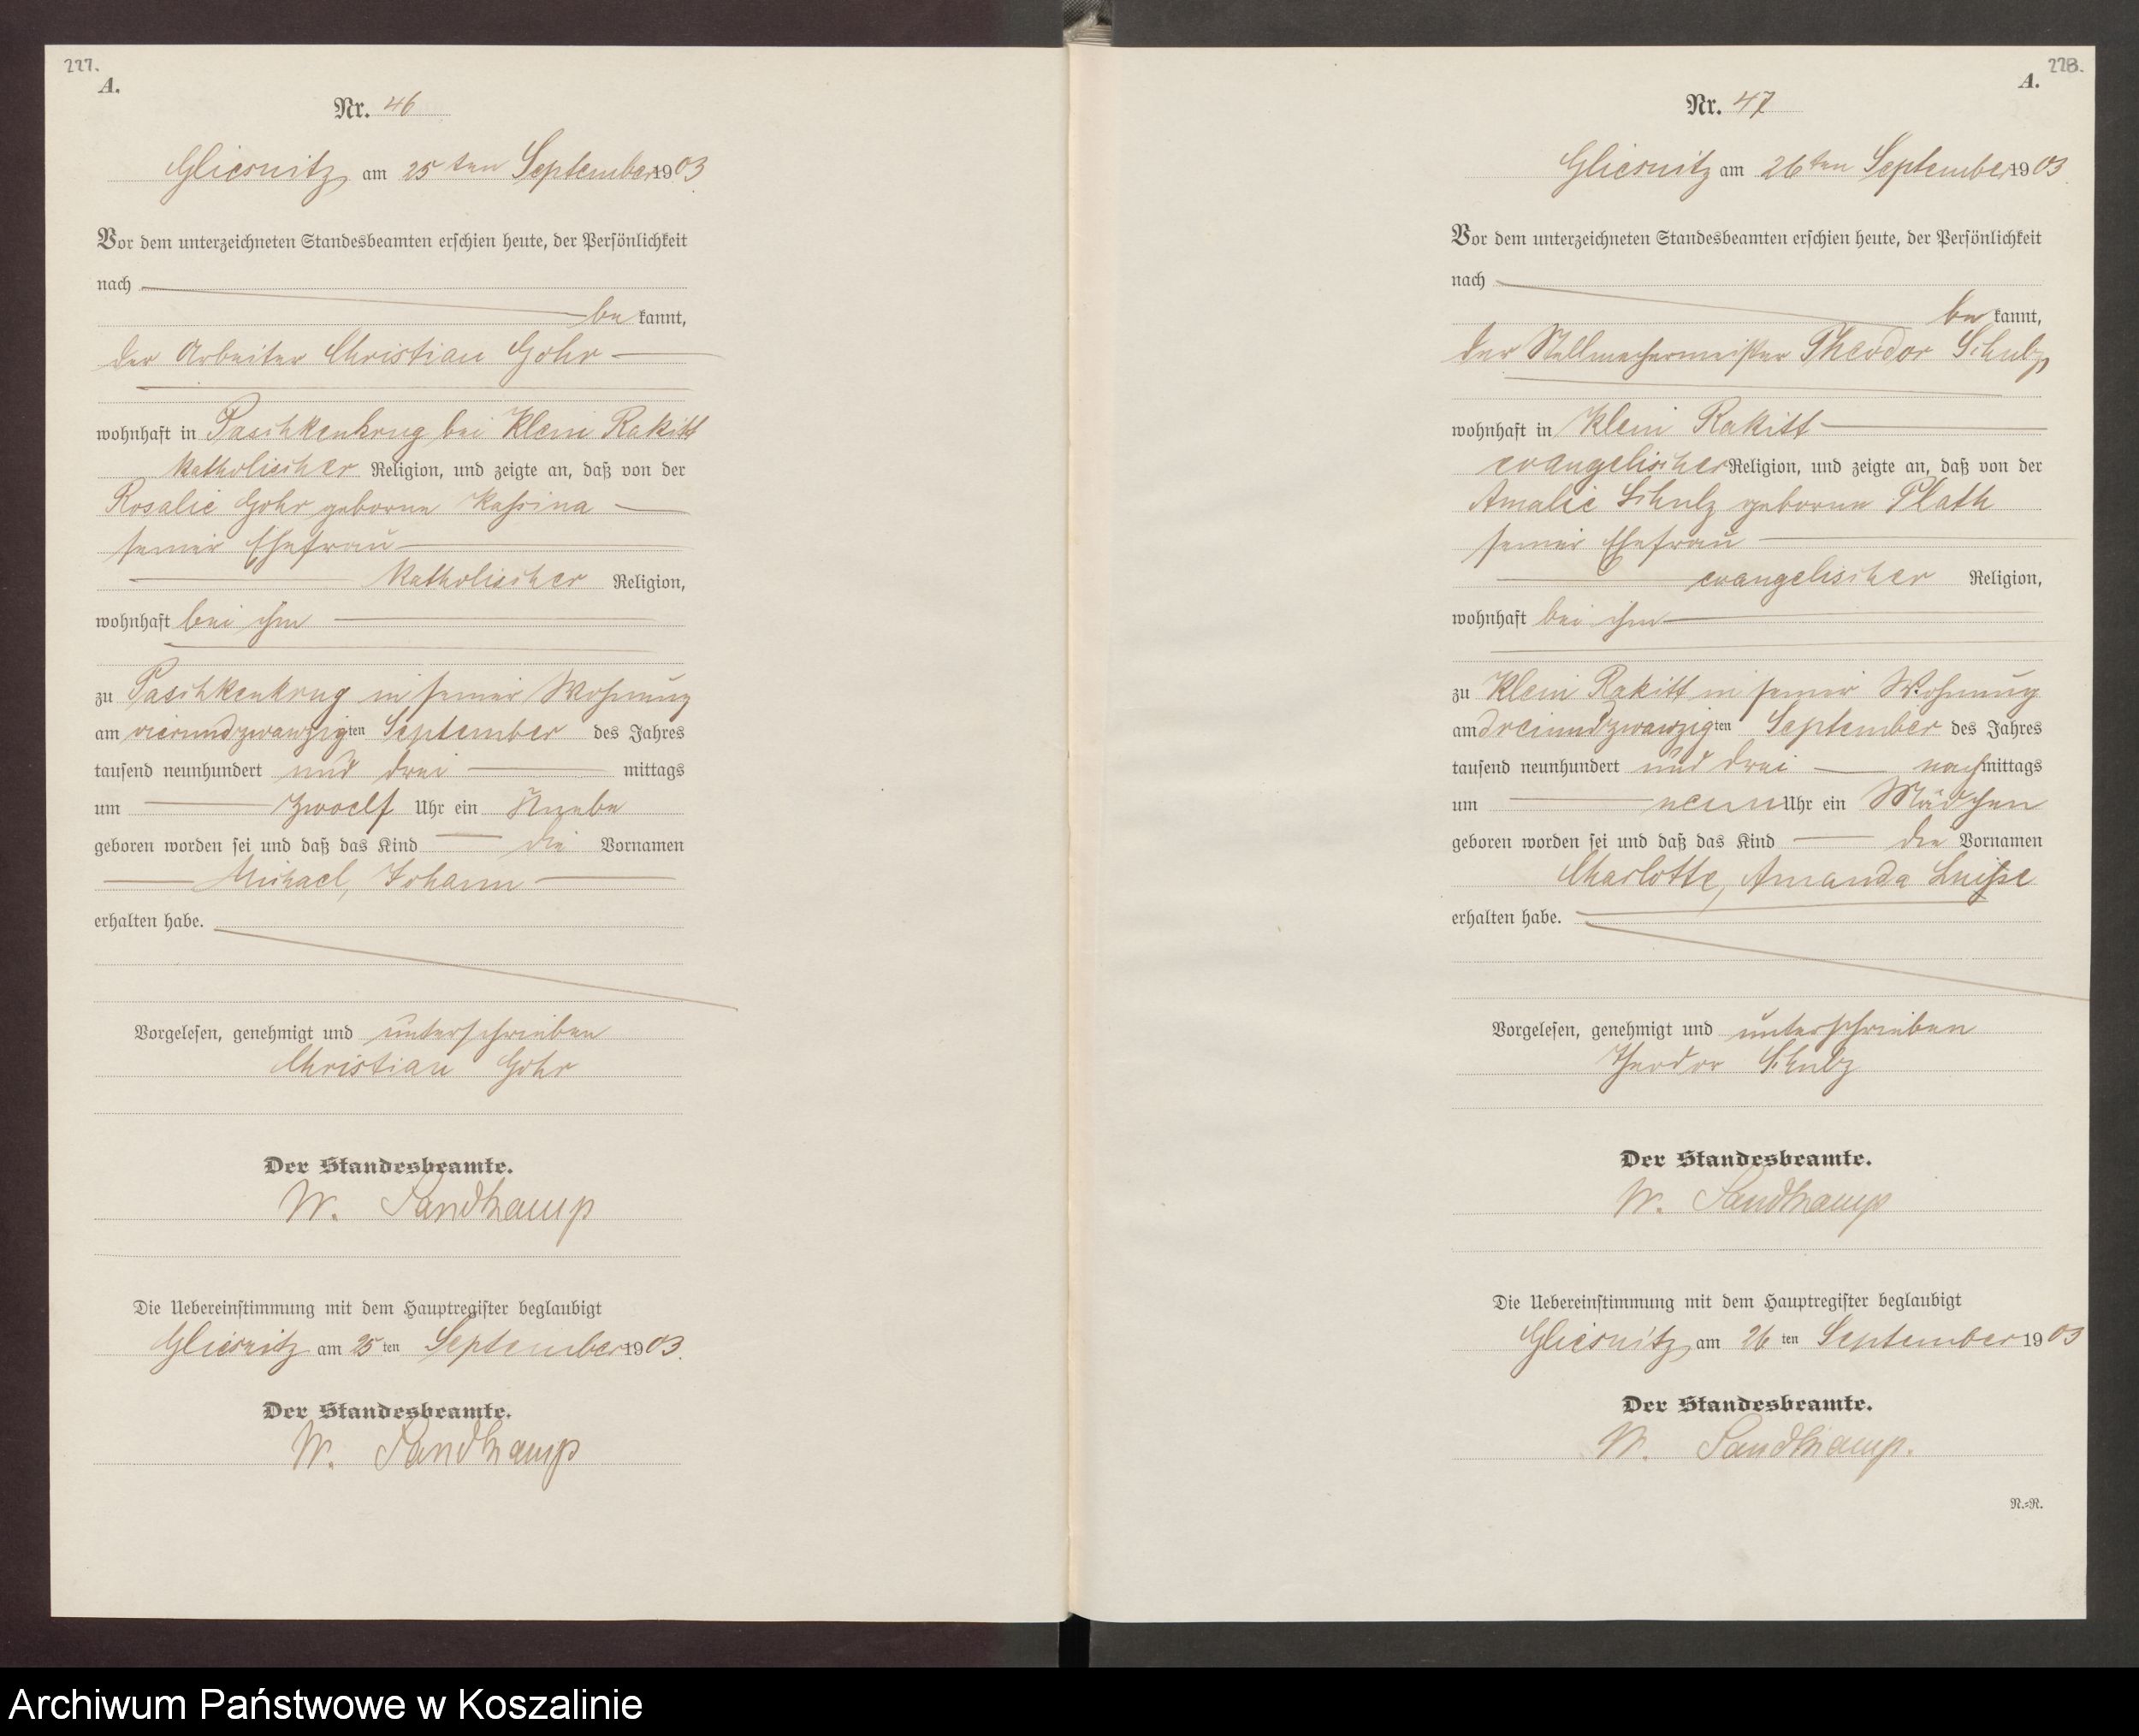 227.
A.
Nr. 46
Gliesnitz am 25ten September 1903
Vor dem unterzeichneten Standesbeamten erschien heute, der Persönlichkeit
nach
be kannt,
der Arbeiter Christian Gohr
wohnhaft in Paschkenkrug bei Klein Rakitt
katholischer Religion, und zeigte an, daß von der
Rosalie Gohr geborne
seiner Ehefrau
katholischer Religion,
wohnhaft bei ihm
zu Paschkenkrug in seiner Wohnung
am vierundzwanzigten September des Jahres
tausend neunhundert und drei mittags
um zwoelf Uhr ein Knabe
geboren worden sei und daß das Kind die Vornamen
Michael, Johann
erhalten habe.
Vorgelesen, genehmigt und unterschrieben
Christian Gohr
Der Standesbeamte.
W. Sandkamp
Die Uebereinstimmung mit dem Hauptregister beglaubigt
Gliesnitz am 25 ten September 1903.
Der Standesbeamte.
W. Sandkamp
228.
A.
Nr. 47
Gliesnitz am 26ten September 1903
Vor dem unterzeichneten Standesbeamten erschien heute, der Persönlichkeit
nach
be kannt,
der Stellmachermeister Theodor Schulz
wohnhaft in Klein Rakitt
evangelischer Religion, und zeigte an, daß von der
Amalie Schulz geborne Plath
seiner Ehefrau
evangelischer Religion,
wohnhaft bei ihm
zu Klein Rakitt in seiner Wohnung
am dreiundzwanzigten September des Jahres
tausend neunhundert und drei nachmittags
um neun Uhr ein Mädchen
geboren worden sei und daß das Kind die Vornamen
Charlotte, Amanda Luise
erhalten habe.
Vorgelesen, genehmigt und unterschrieben
Theodor Schulz
Der Standesbeamte.
W. Sandkamp
Die Uebereinstimmung mit dem Hauptregister beglaubigt
Gliesnitz am 26 ten September 1903
Der Standesbeamte.
W. Sandkamp.
N.=R.
Archiwum Państwowe w Koszalinie